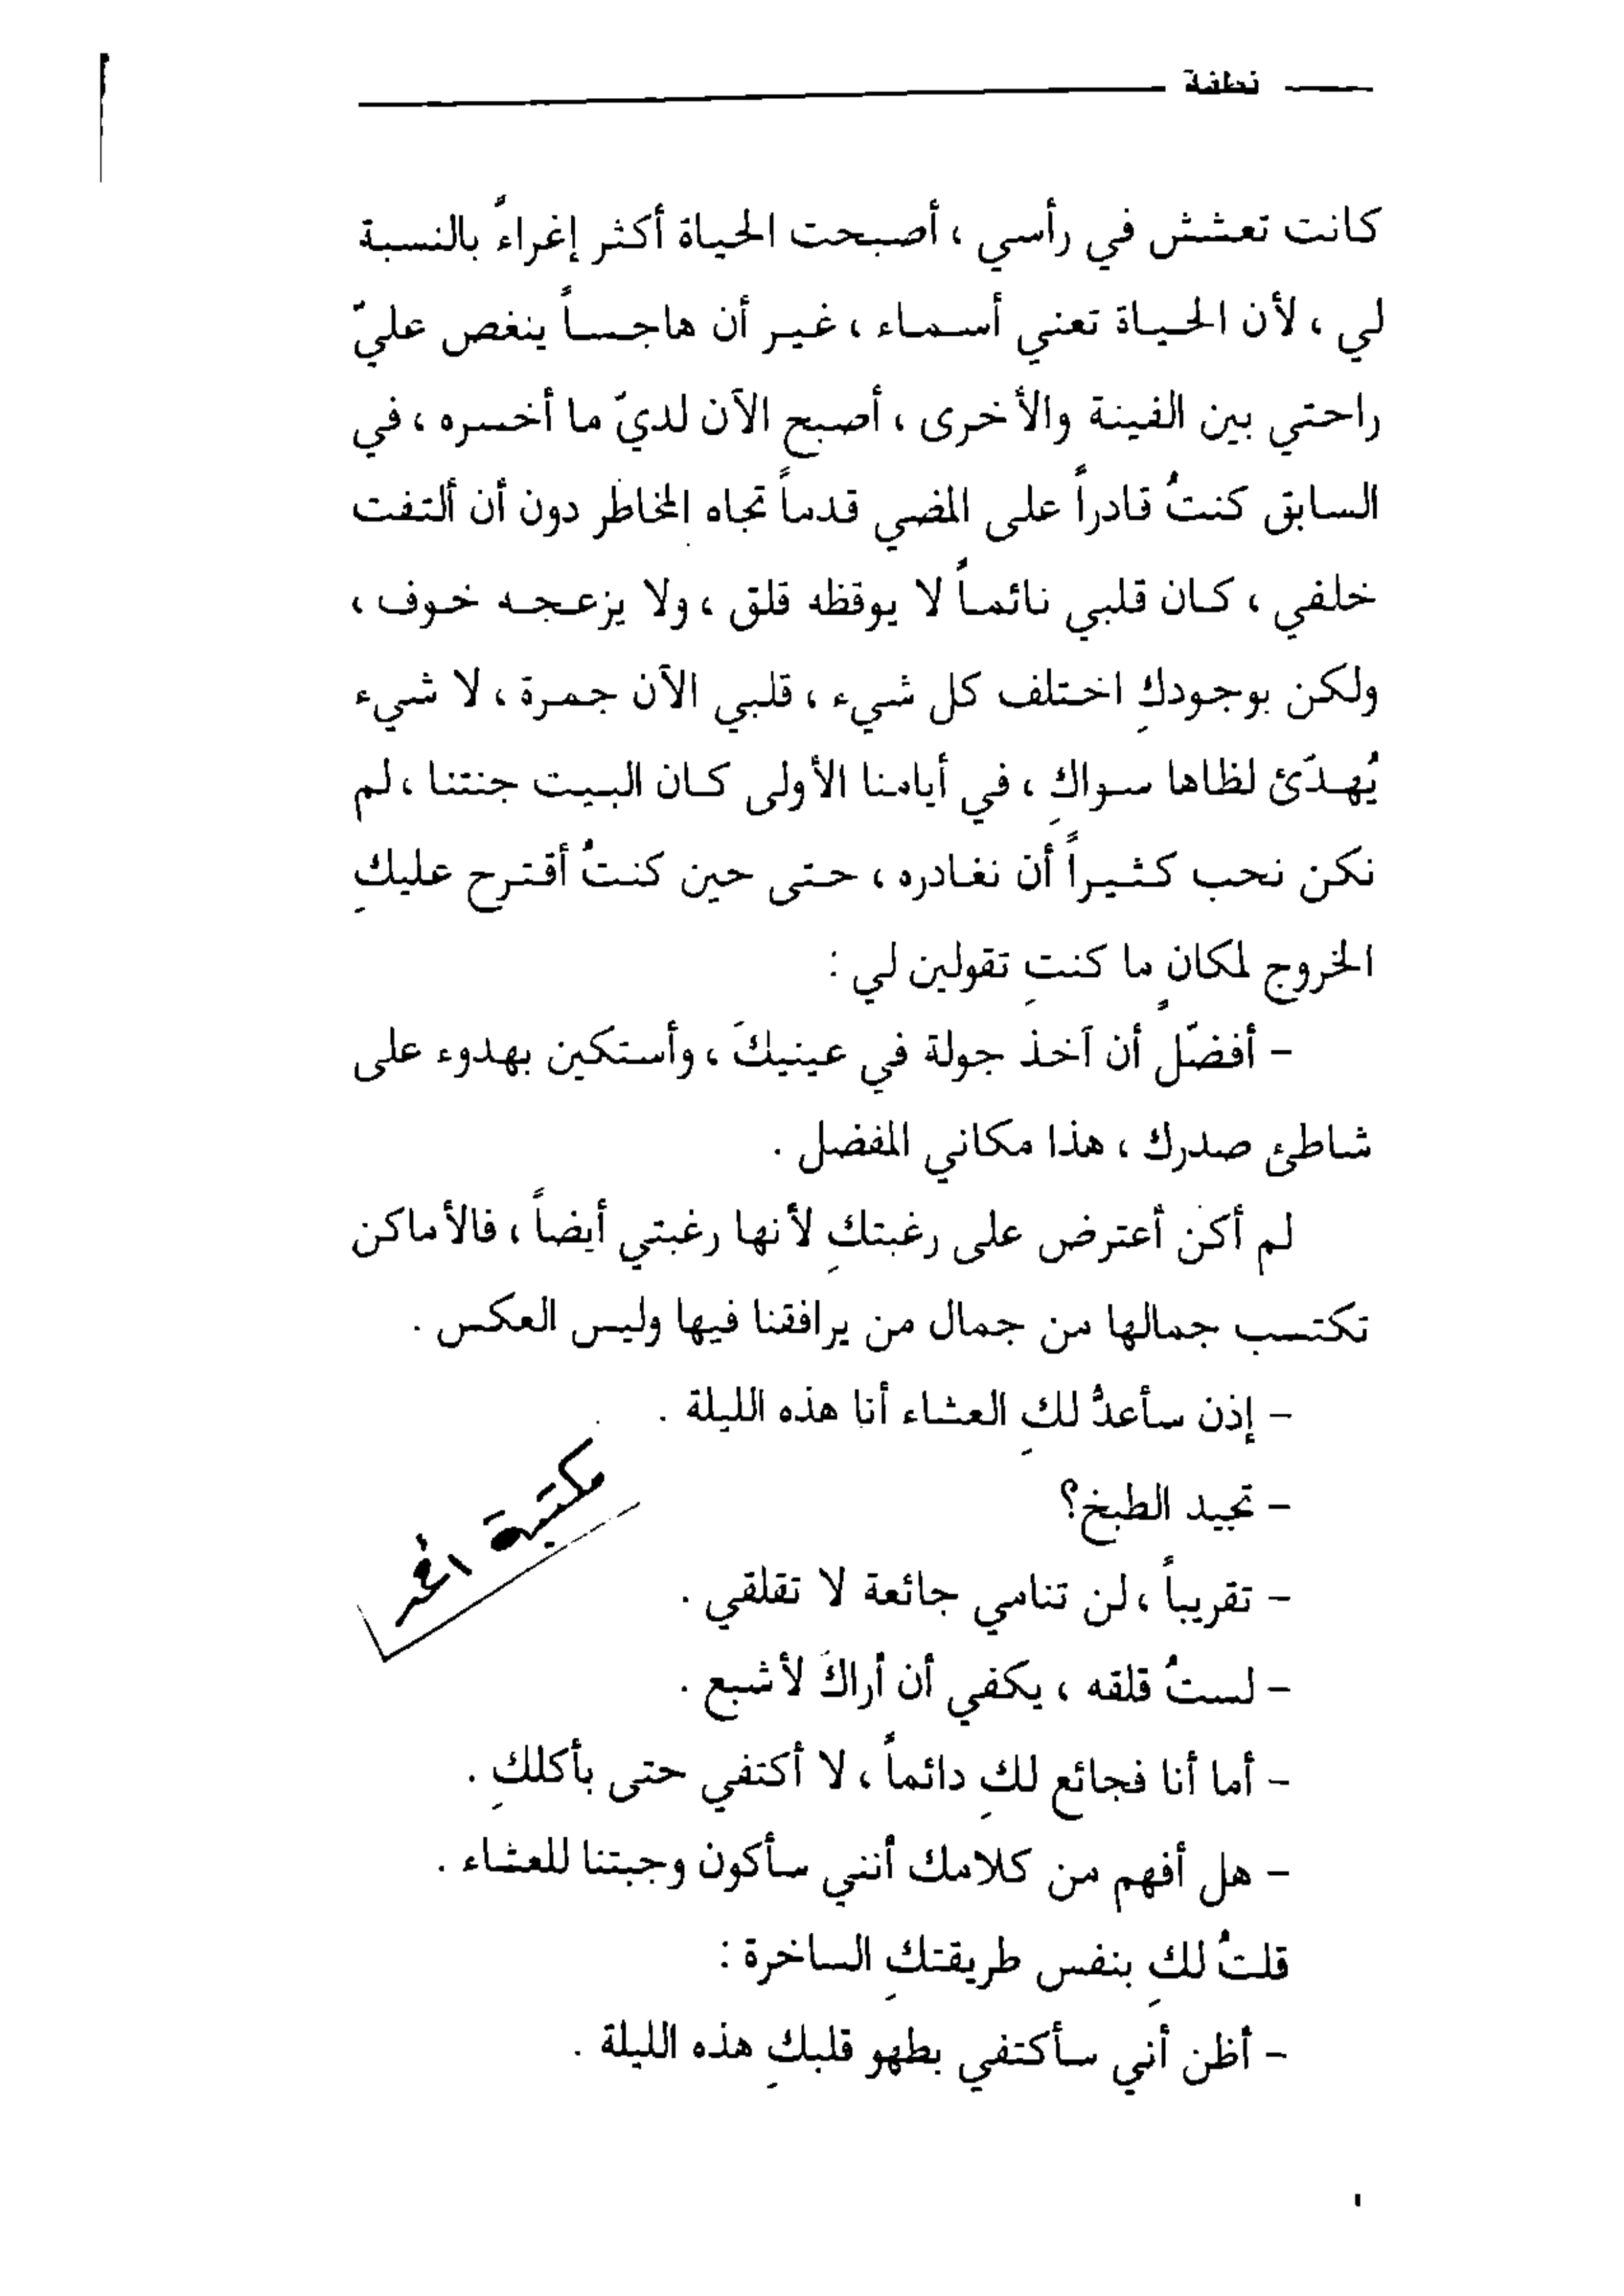 نطفة
كانت تعشش في رأسي ، أصبحت الحياة أكثر إغراءً بالنسبة
لي ، لأن الحياة تعني أسماء ، غير أن هاجساً ينغص عليّ
راحتي بين الفينة والأخرى ، أصبح الآن لديّ ما أخسره ، في
السابق كنتُ قادراً على المضي قدماً تجاه المخاطر دون أن ألتفت
خلفي ، كان قلبي نائماً لا يوقظه قلق ، ولا يزعجه خوف ،
ولكن بوجودكِ اختلف كل شيء ، قلبي الآن جمرة ، لا شيء
يُهدّئ لظاها سواكِ ، في أيامنا الأولى كان البيت جنتنا ، لم
نكن نحب كثيراً أن نغادره ، حتى حين كنتُ أقترح عليكِ
الخروج لمكانٍ ما كنتِ تقولين لي :
– أفضّل أن آخذ جولة في عينيكَ ، وأستكين بهدوء على
شاطئ صدرك ، هذا مكاني المفضل .
لم أكن أعترض على رغبتكِ لأنها رغبتي أيضاً ، فالأماكن
تكتسب جمالها من جمال من يرافقنا فيها وليس العكس .
– إذن سأعدُّ لكِ العشاء أنا هذه الليلة .
– تجيد الطبخ؟
– تقريباً ، لن تنامي جائعة لا تقلقي .
– لستُ قلقه ، يكفي أن أراكَ لأشبع .
– أما أنا فجائع لكِ دائماً ، لا أكتفي حتى بأكلكِ .
– هل أفهم من كلامك أنني سأكون وجبتنا للعشاء .
قلتُ لكِ بنفس طريقتكِ الساخرة :
– أظن أني سأكتفي بطهو قلبكِ هذه الليلة .
مكتبة